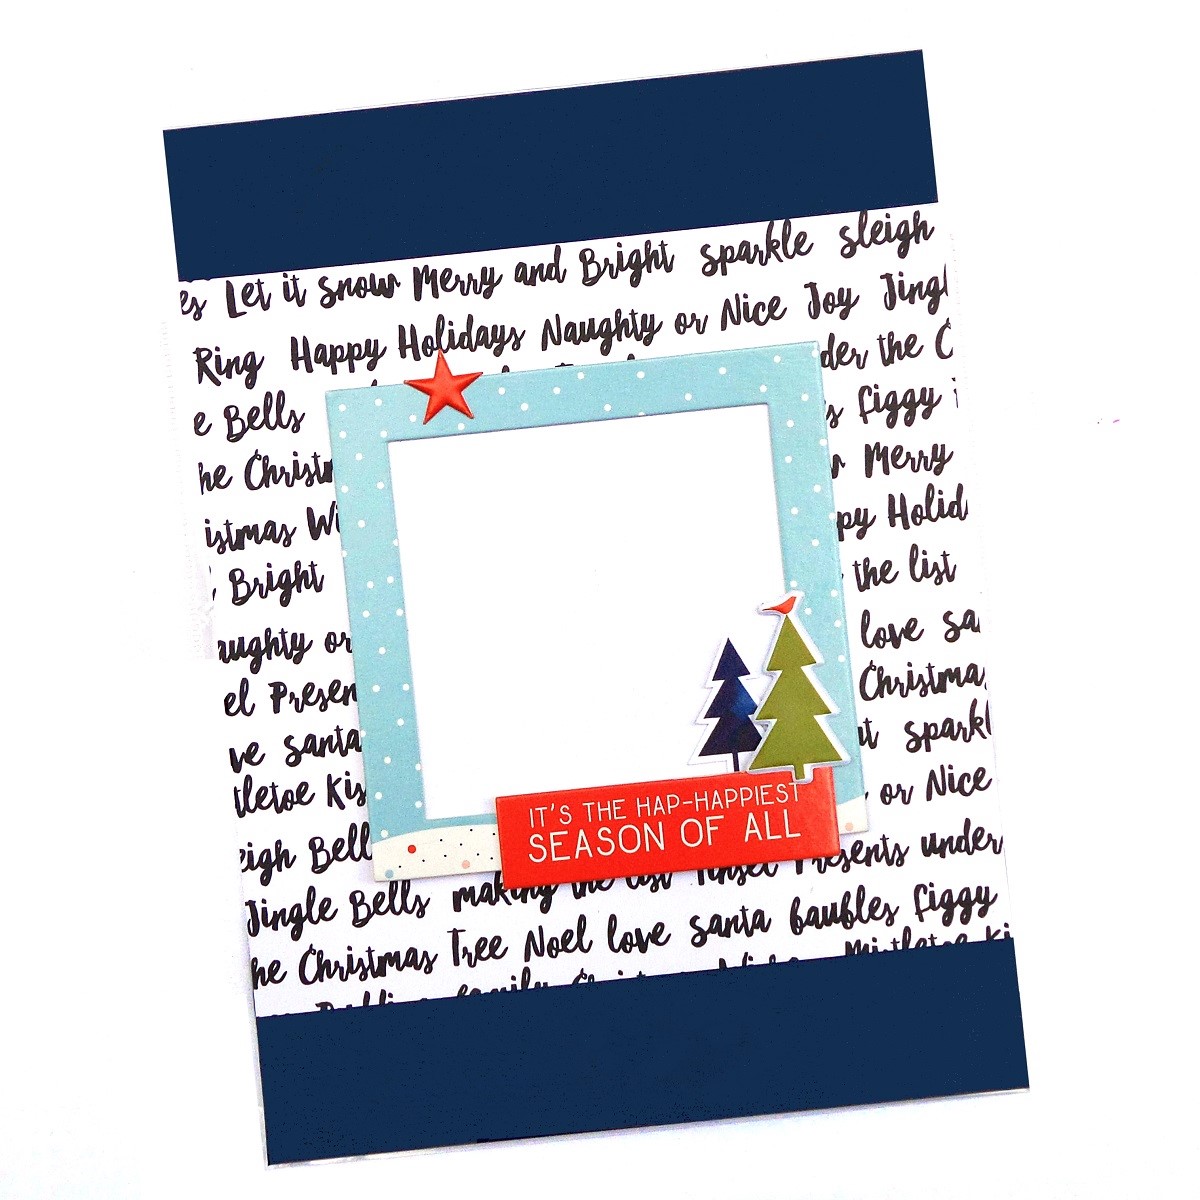 es Let it snow Merry and Bright sparkle sleigh
Ring Happy Holidays Naughty or Nice Joy Jingl
der the C
e Bells
s figgy
he Christm
Merry
istmas Wi
py Holid
Bright
the list
aughty or
love sa
el Presen
Christmas
ve santa
sparkl
tletoe Kis
or Nice
IT'S THE HAP-HAPPIEST
SEASON OF ALL
eigh Bell
Jingle Bells making the list Tinsel Presents under
he Christmas Tree Noel love santa baubles figgy
family Mistletoe Ki